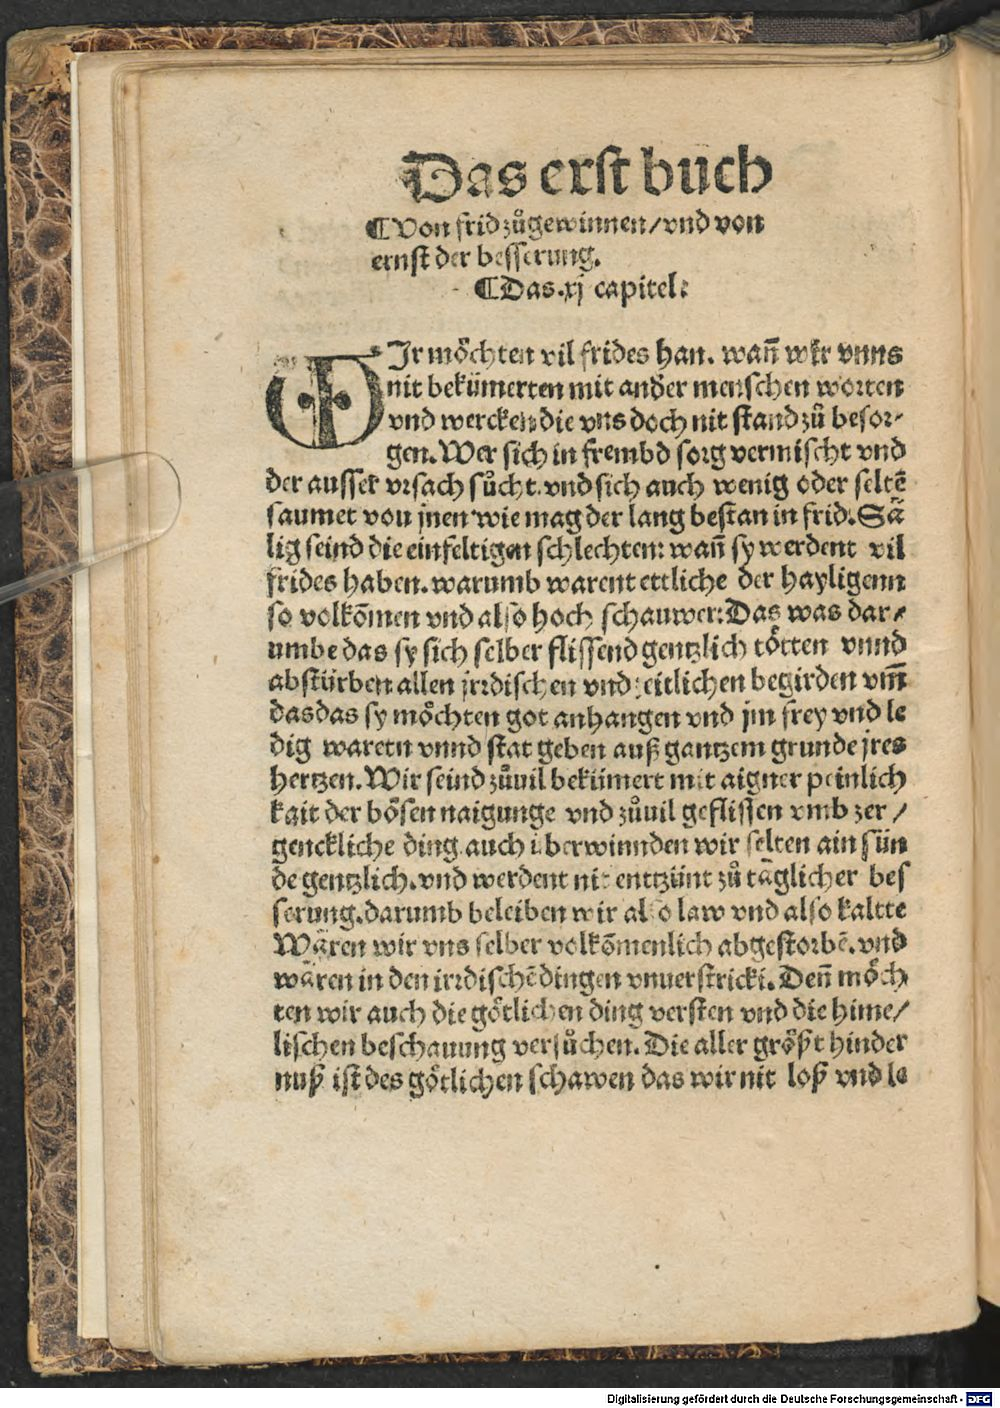 Das erst buch
¶Von frid zůgewinnen/vnd von
ernst der besserung.
¶Das.xj capitel:
WIr möchten vil frides han. wañ wir vnns
nit bekümerten mit ander menschen worten
vnd wercken die vns doch nit stand zů besor-
gen. Wer sich in frembd sorg vermischt vnd
der ausser vrsach sůcht. vnd sich auch wenig oder seltē
saumet von jnen wie mag der lang bestan in frid. Sä
lig seind die einfeltigen schlechten: wañ sy werdent vil
frides haben. warumb warent ettliche der hayligenn
so volkōmen vnd also hoch schauwer: Das was dar-
umbe das sy sich selber flissend gentzlich tötten vnnd
abstürben allen jrrdischen vnd zeitlichen begirden vm̄
das das sy möchten got anhangen vnd jm frey vnd le
dig waretn vnnd stat geben auß gantzem grunde jres
hertzen. Wir seind zůuil bekümert mit aigner peinlich
kait der bösen naigunge vnd zůuil geflissen vmb zer/
genckliche ding. auch überwinnden wir selten ain sün
de gentzlich. vnd werdent nit enttzünt zů täglicher bes
serung. darumb beleiben wir also law vnd also kaltte
Wären wir vns selber volkōmenlich abgestorbē. vnd
wären in den irrdischē dingen vnuerstrickt. Deñ möch
ten wir auch die götlichen ding versten vnd die hime/
lischen beschauung versůchen. Die aller größt hinder
nuß ist des götlichen schawen das wir nit loß vnd le
Digitalisierung gefördert durch die Deutsche Forschungsgemeinschaft - DFG